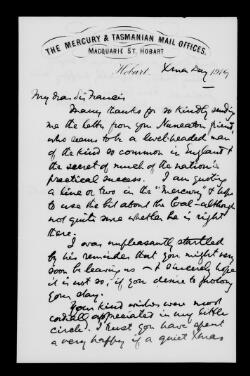 THE MERCURY & TASMANIAN MAIL OFFICES,
MACQUARIE ST. HOBART
Hobart. Xmas Day 1919
My dear Sir Francis
Many thanks for so kindly sending
me the letter from your Nuneaton friend
who seems to be a level-headed man
of the kind so common in England &
the secret of much of the nation's
practical success. I am quoting
a line or two in the "Mercury" & hope
to use the bit about the Coal - although
not quite sure whether he is right
there.
I was unpleasantly startled
by his reminder that you might very
soon be leaving us - & sincerely hope
it is not so, if you desire to prolong
your stay.
Your kind wishes were most
cordially appreciated in my little
circle. I trust you have spent
a very happy if a quiet Xmas